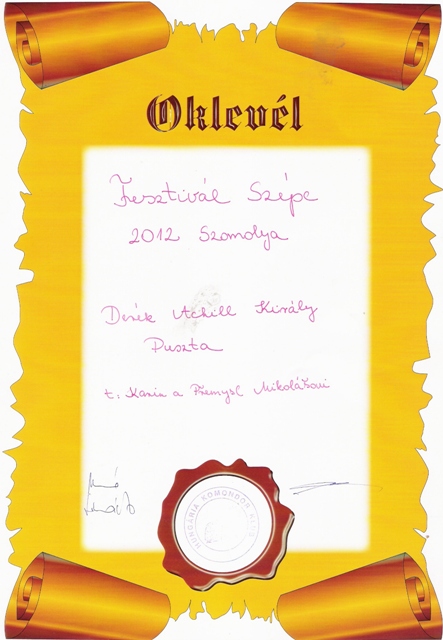 Oklevél
Fesztivál Szépe
2012 Szomolya
Derék Achill Király
Puszta
t.: Karin a Přemysl Mikoláškovi
HUNGÁRIA KOMONDOR KLUB